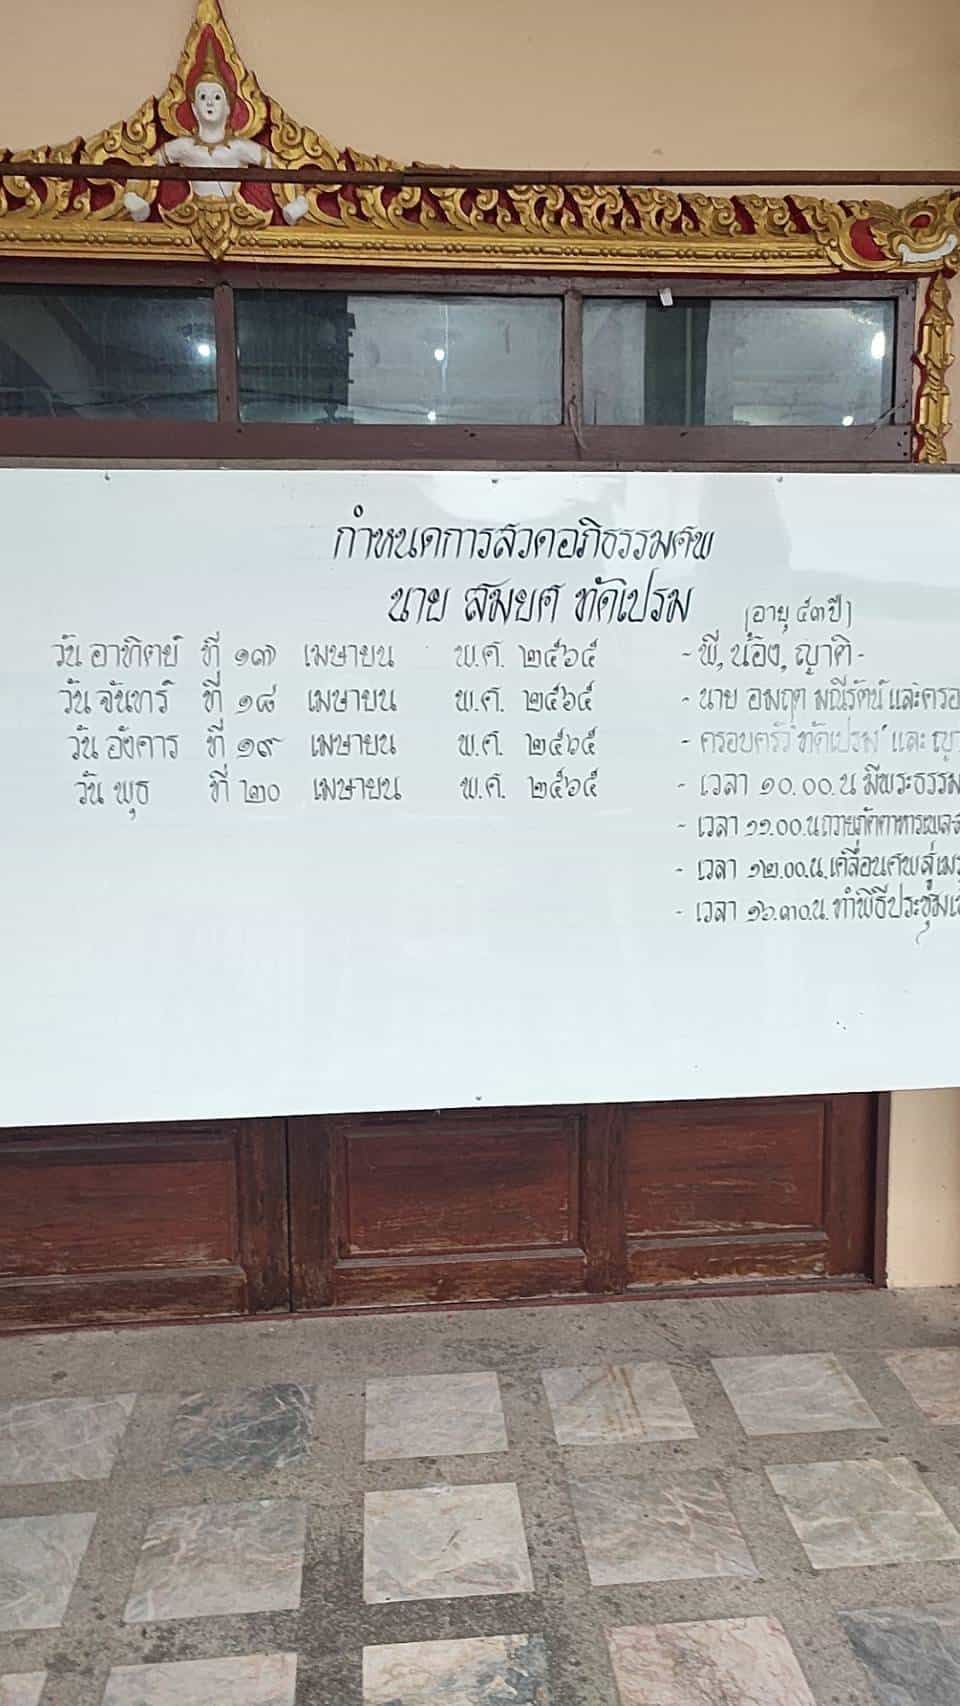 กำหนดการสวดอภิธรรมศพ
นาย สมยศ ทัดเปรม (อายุ ๕๓ ปี)
วัน อาทิตย์ ที่ ๑๗ เมษายน พ.ศ. ๒๕๖๕ - พี่, น้อง, ญาติ -
วัน จันทร์ ที่ ๑๘ เมษายน พ.ศ. ๒๕๖๕ - นาย อมฤต มณีรัตน์ และครอ
วัน อังคาร ที่ ๑๙ เมษายน พ.ศ. ๒๕๖๕ - ครอบครัว "ทัดเปรม" และ ญา
วัน พุธ ที่ ๒๐ เมษายน พ.ศ. ๒๕๖๕ - เวลา ๑๐.๐๐.น มีพระธรรม
- เวลา ๑๑.๐๐.น ถวายภัตตาหารเพล
- เวลา ๑๒.๐๐.น. เคลื่อนศพสู่เม
- เวลา ๑๖.๓๐.น. ทำพิธีประชุมเ